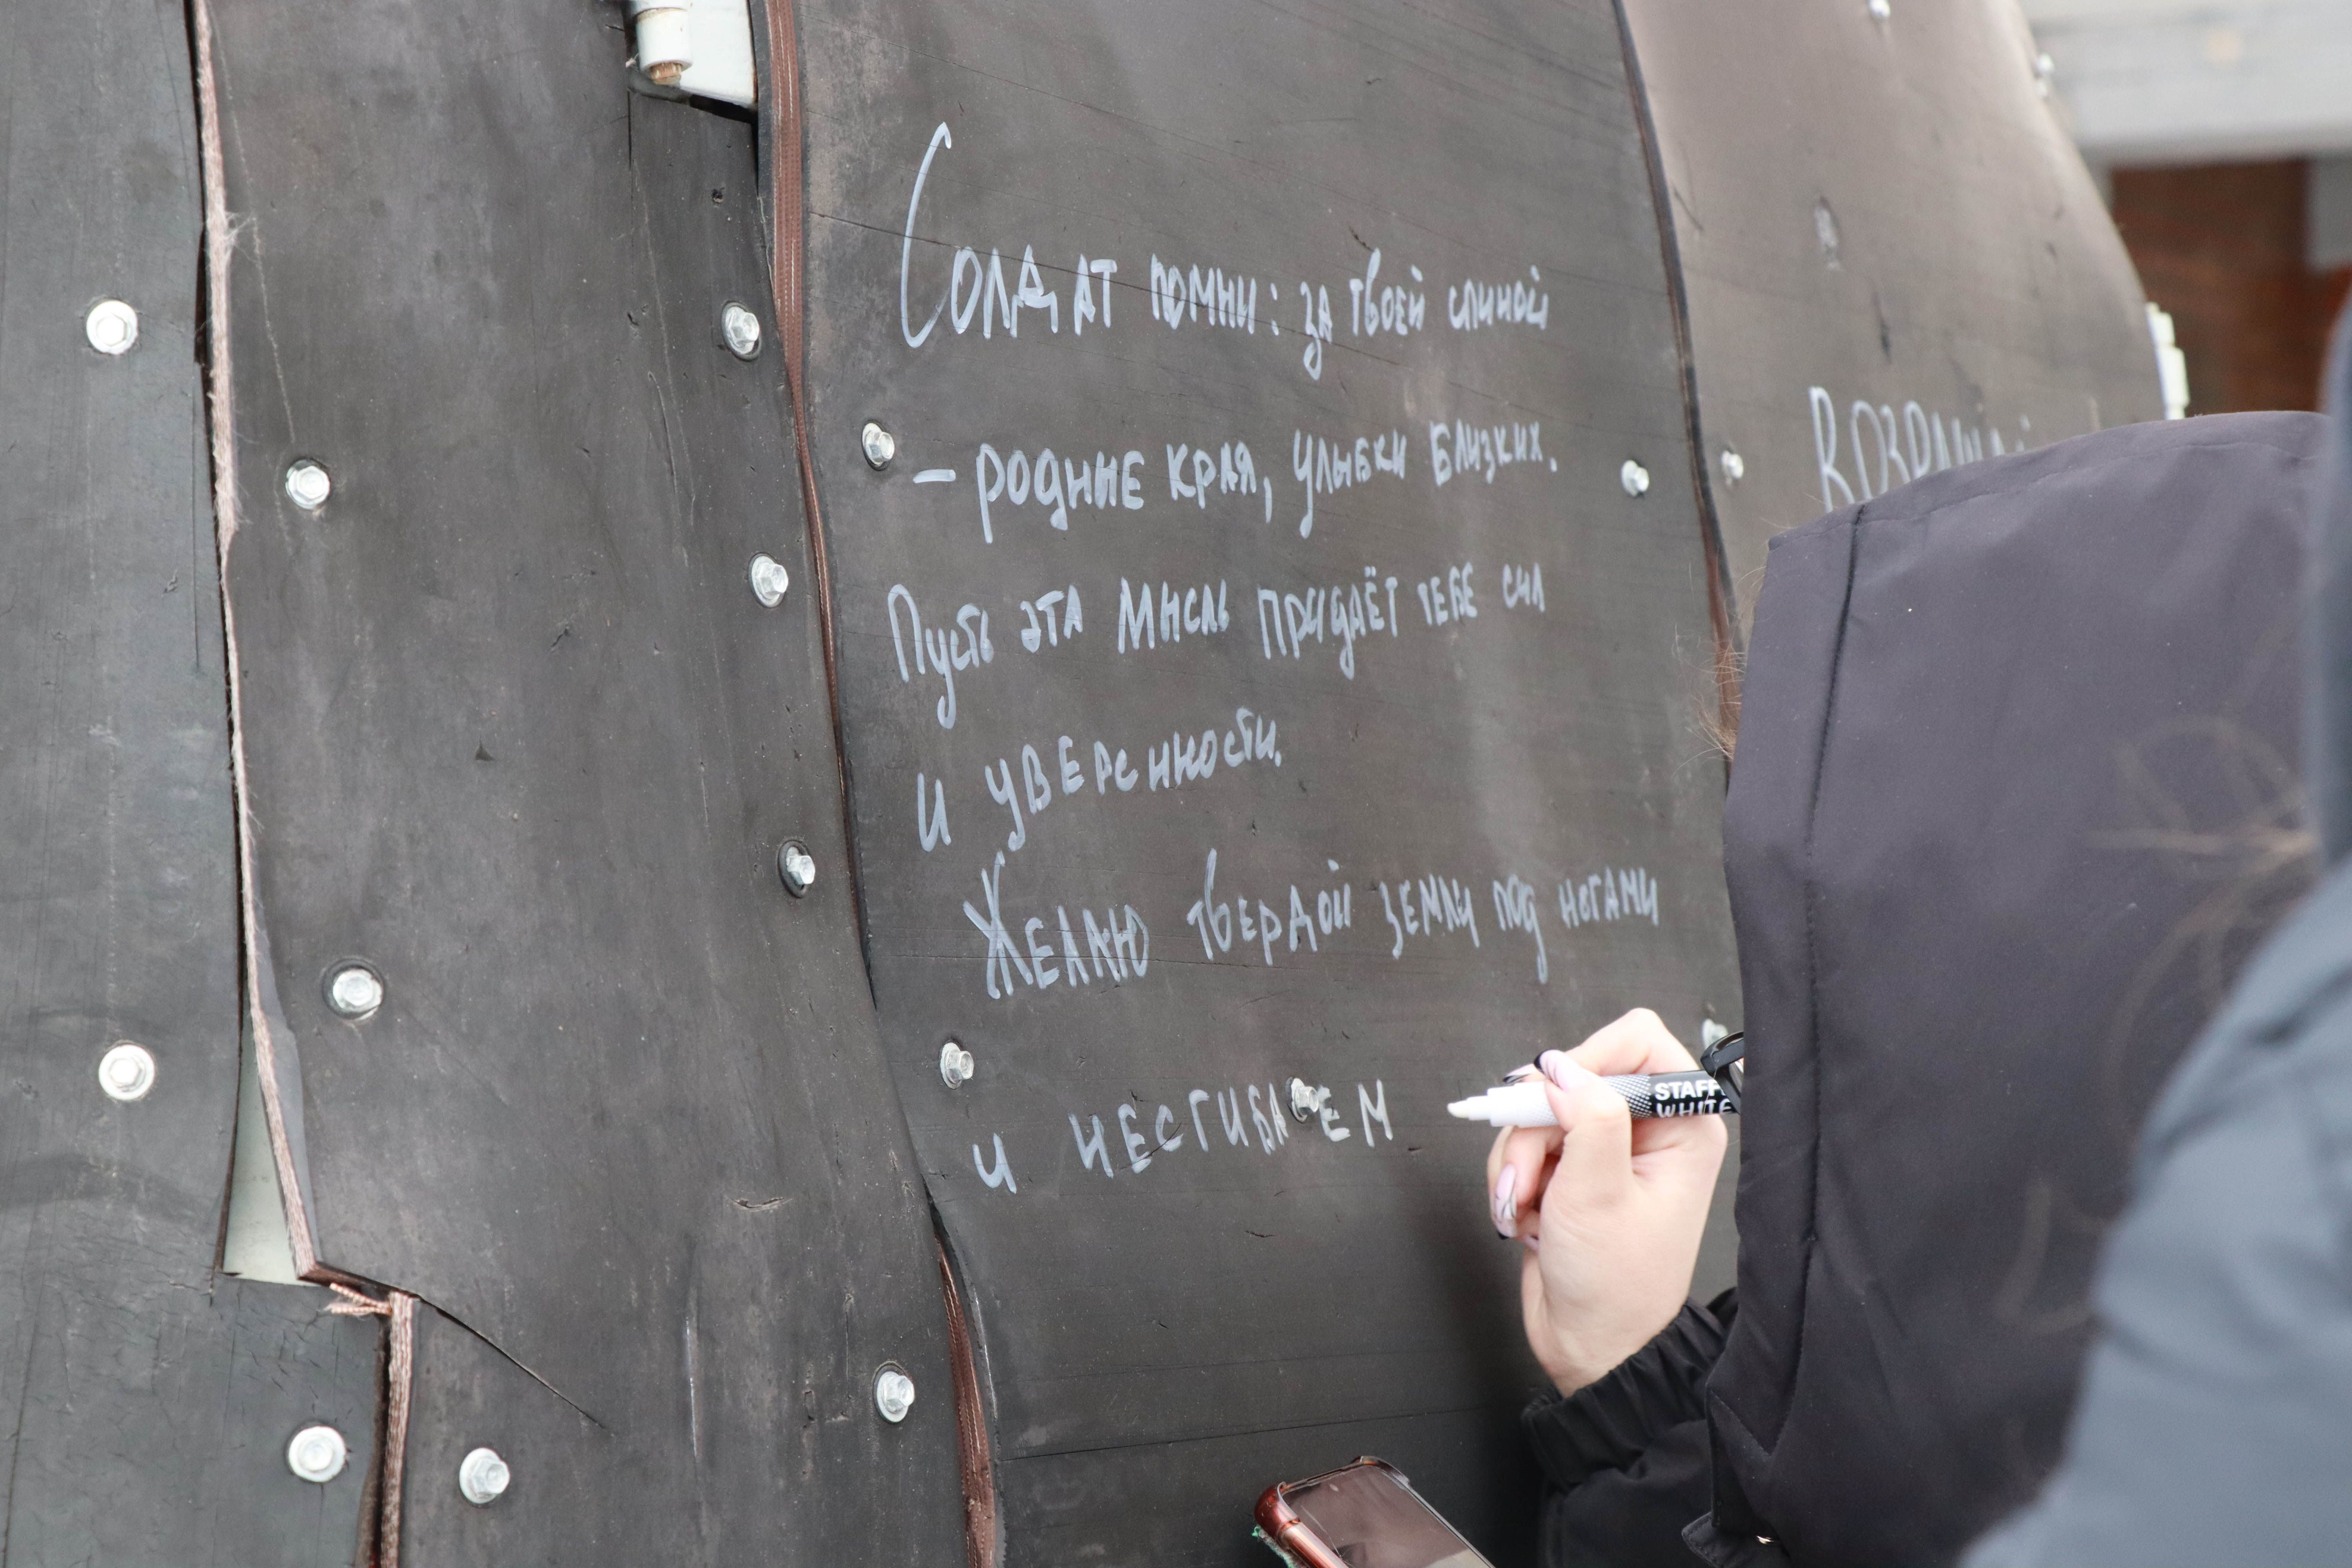 Солдат помни: за твоей спиной
– родные края, улыбки близких.
Пусть эта мысль придаёт тебе сил
и уверенности.
Желаю твердой земли под ногами
и несгибаем
STAFF
WHITE